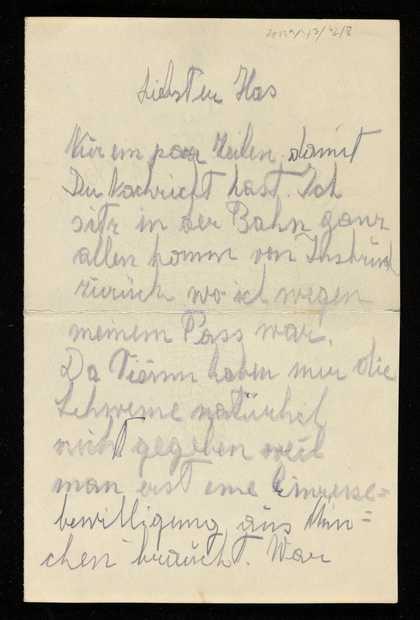 Liebster Has
Nur ein paar Zeilen damit
Du Nachricht hast. Ich
sitz in der Bahn ganz
allen komm von Insbruck
zurück wo ich wegen
meinem Pass war.
Da Visum haben mir die
Schweine natürlich
nicht gegeben weil
man erst eine Einreise=
bewilligung aus Mün=
chen braucht. War